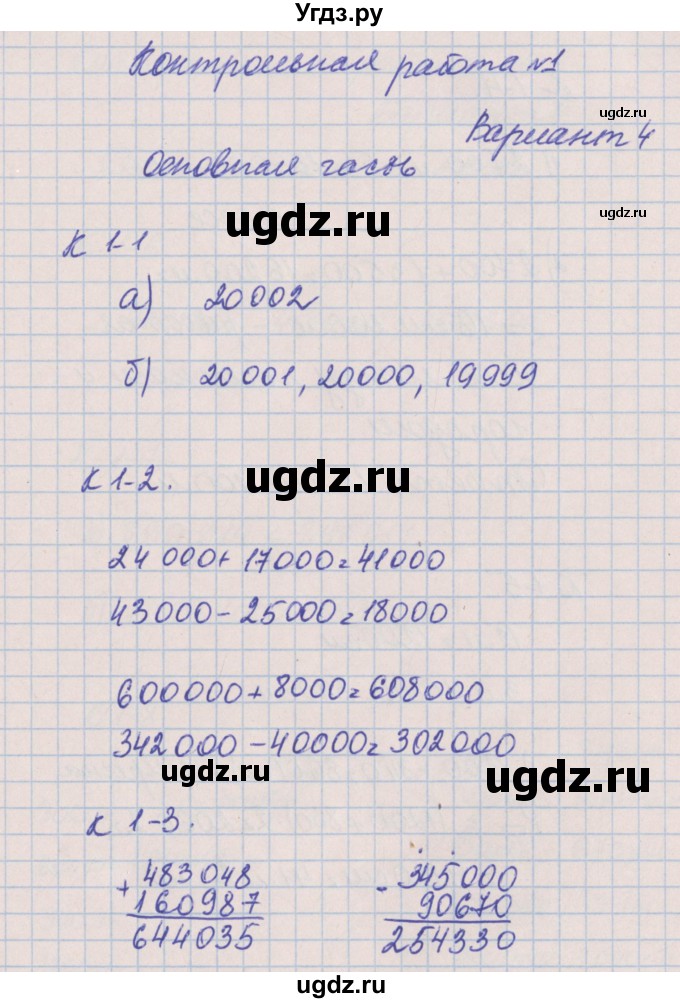 Угдз.ру
Контрольная работа №1
ugdz.ru
Вариант 4
Основная часть
ugdz.ru
ugdz.ru
К 1-1
а) 20002
б) 20001, 20000, 19999
К 1-2.
ugdz.ru
24 000 + 17000 = 41000
43000 - 25000 = 18000
600000 + 8000 = 608000
342 000 - 40000 = 302000
ugdz.ru
ugdz.ru
К 1-3.
+ 483048
160987
644035
- 345000
90670
254330
ugdz.ru